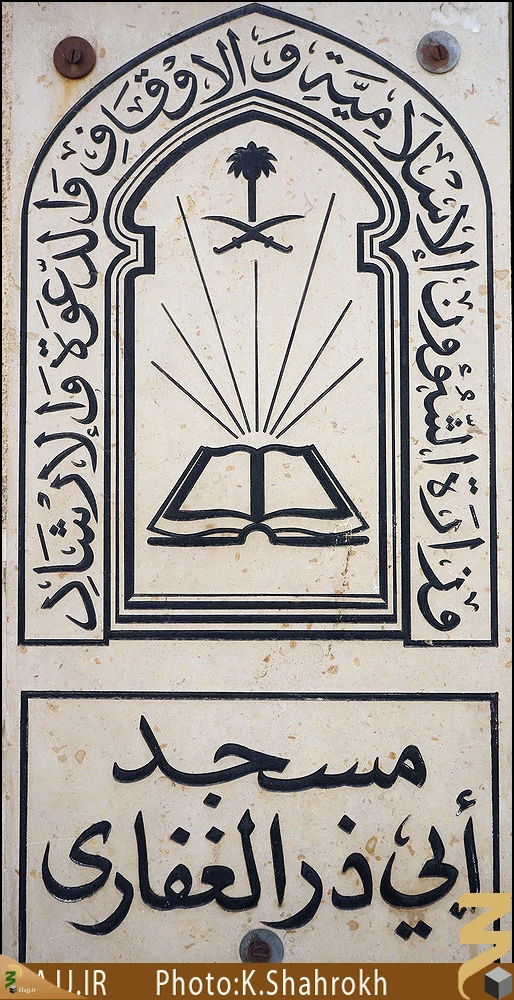 وزارة الشؤون الإسلامية والأوقاف والدعوة والإرشاد
مسجد
أبي ذر الغفاري
AJ.IR Photo:K.Shahrokh
Hajj.ir